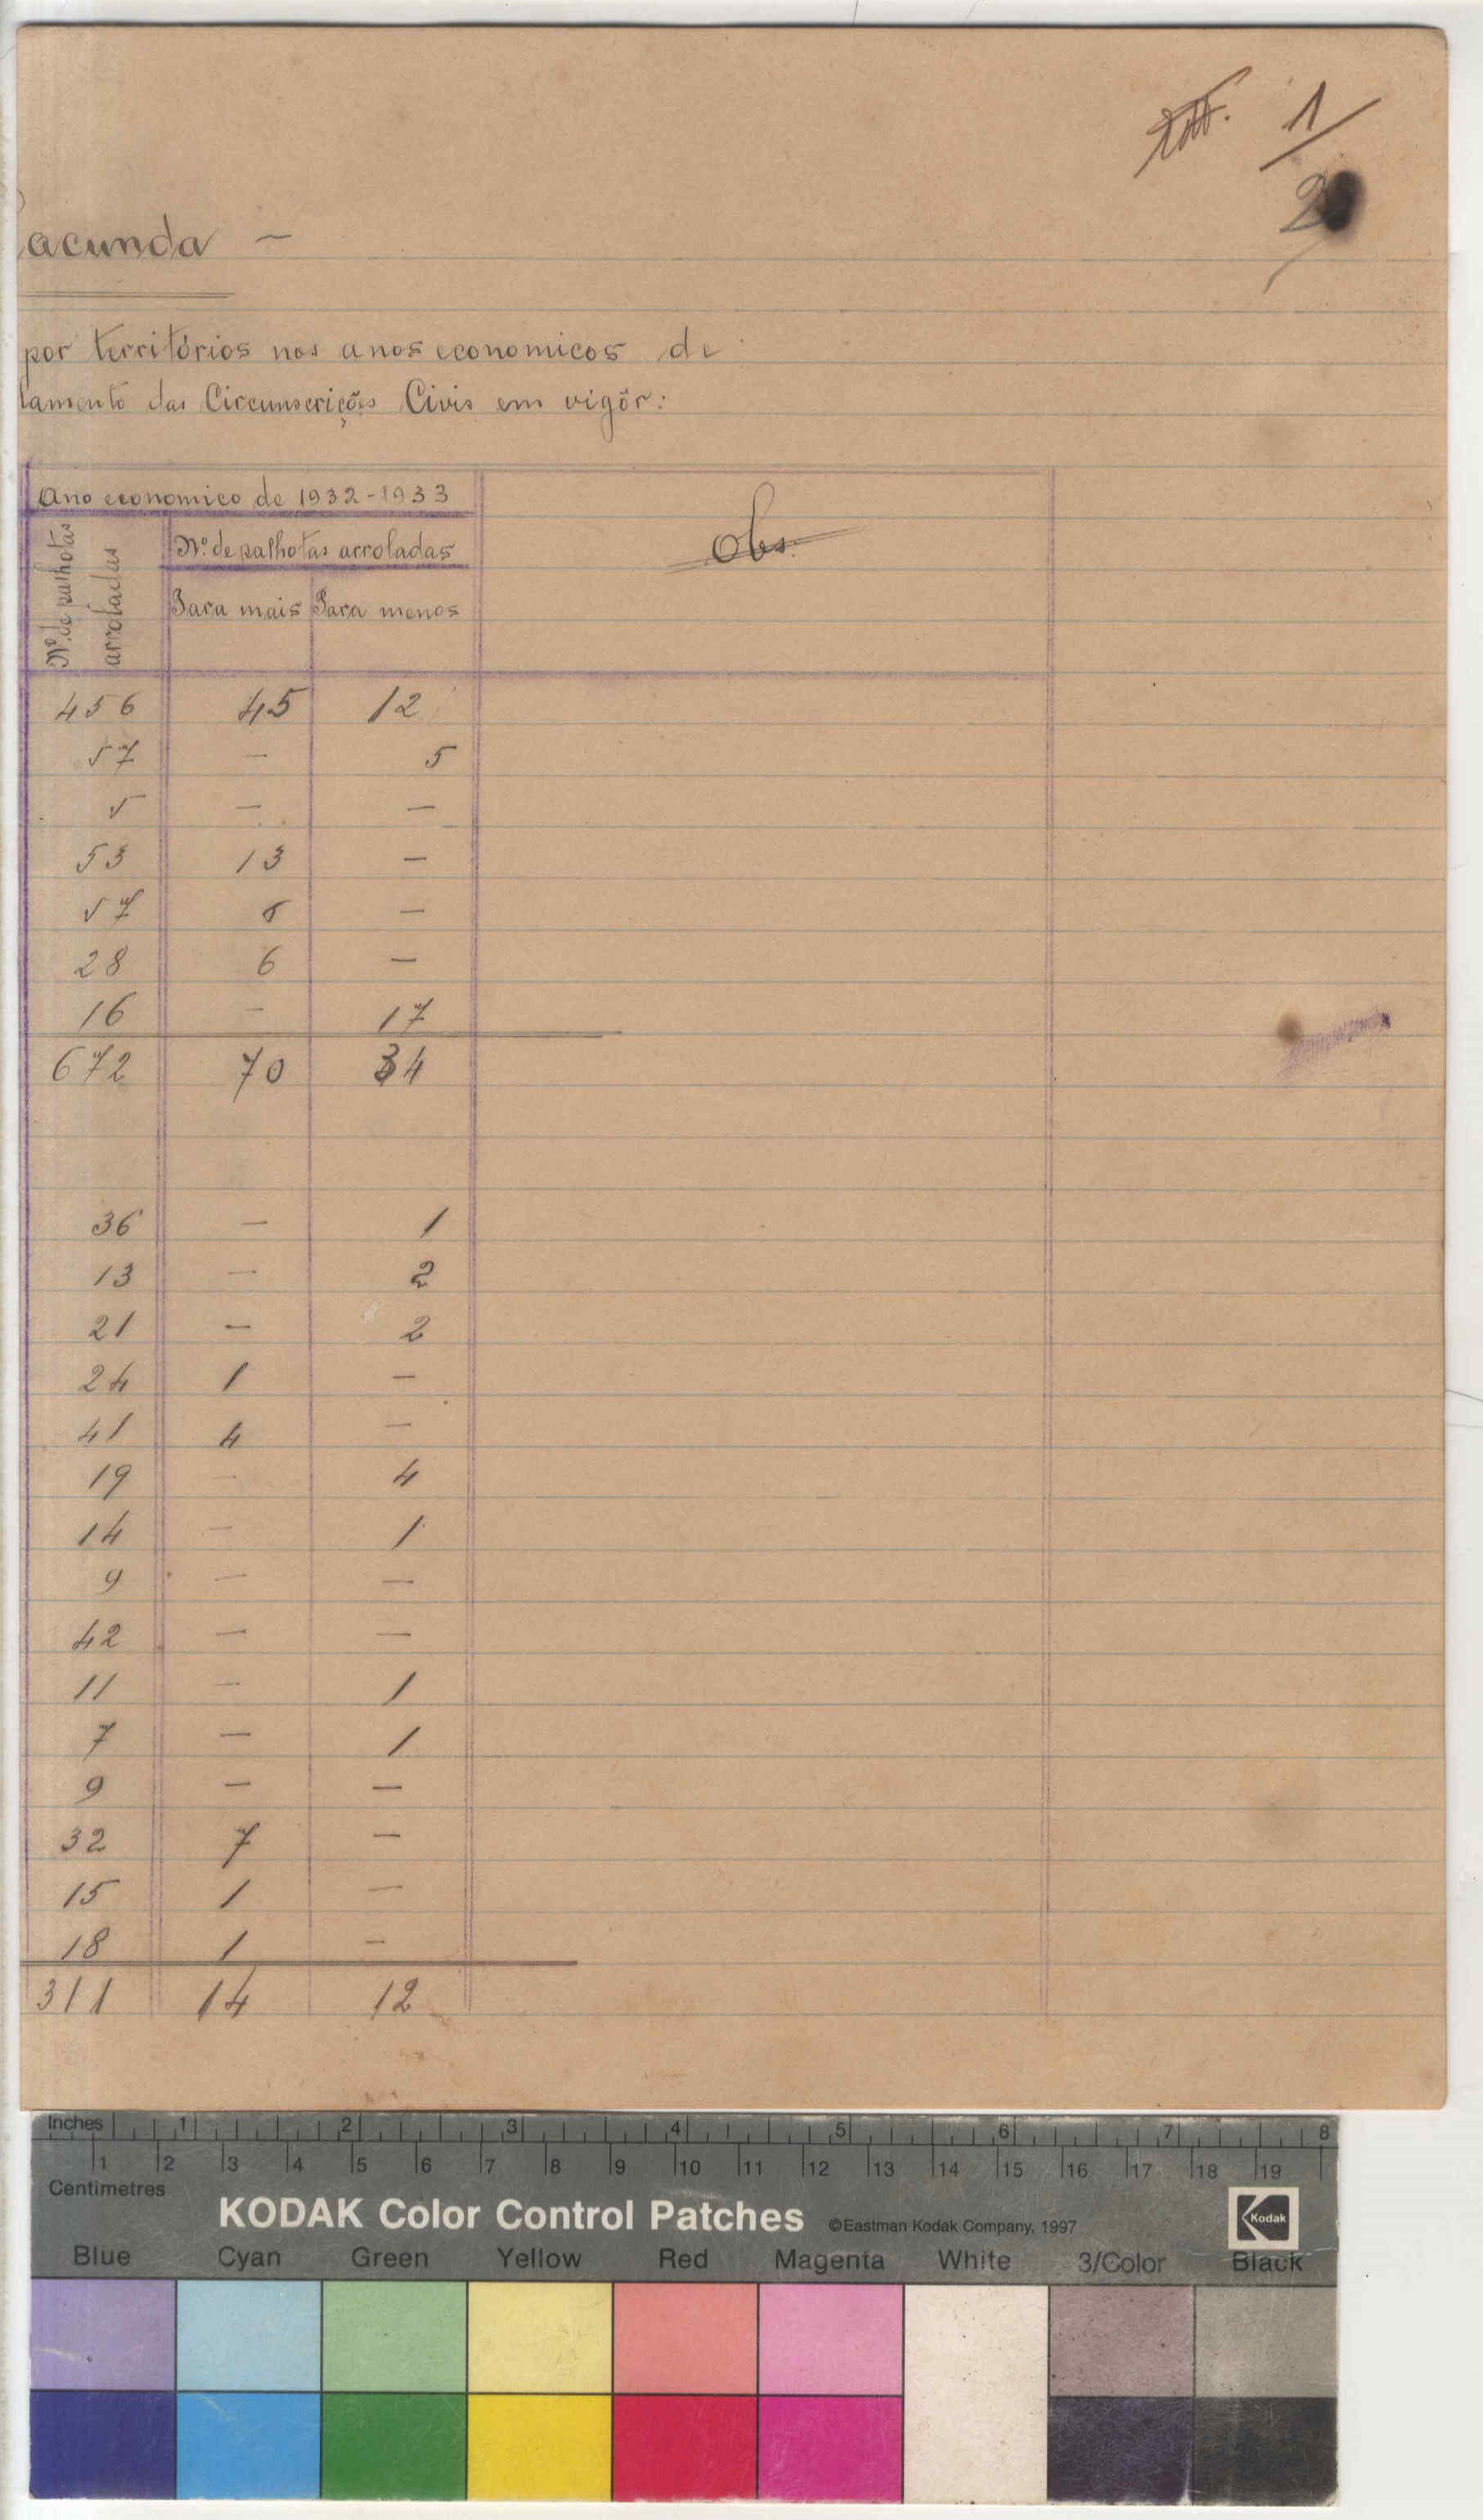 1
2
acunda –
por territórios nos anos economicos de
lamento das Circunscrições Civis em vigôr:
Ano economico de 1932-1933
Nº de palhotas arroladas
Nº de palhotas arroladas
Para mais Para menos
Obs.
456 45 12
57 – 5
5 – –
53 13 –
57 6 –
28 6 –
16 – 17
672 70 34
36 – 1
13 – 2
21 – 2
24 1 –
41 4 –
19 – 4
14 – 1
9 – –
42 – –
11 – 1
7 – 1
9 – –
32 7 –
15 1 –
18 1 –
311 14 12
Inches 1 2 3 4 5 6 7 8
1 2 3 4 5 6 7 8 9 10 11 12 13 14 15 16 17 18 19
Centimetres
KODAK Color Control Patches ©Eastman Kodak Company, 1997 Kodak
Blue Cyan Green Yellow Red Magenta White 3/Color Black